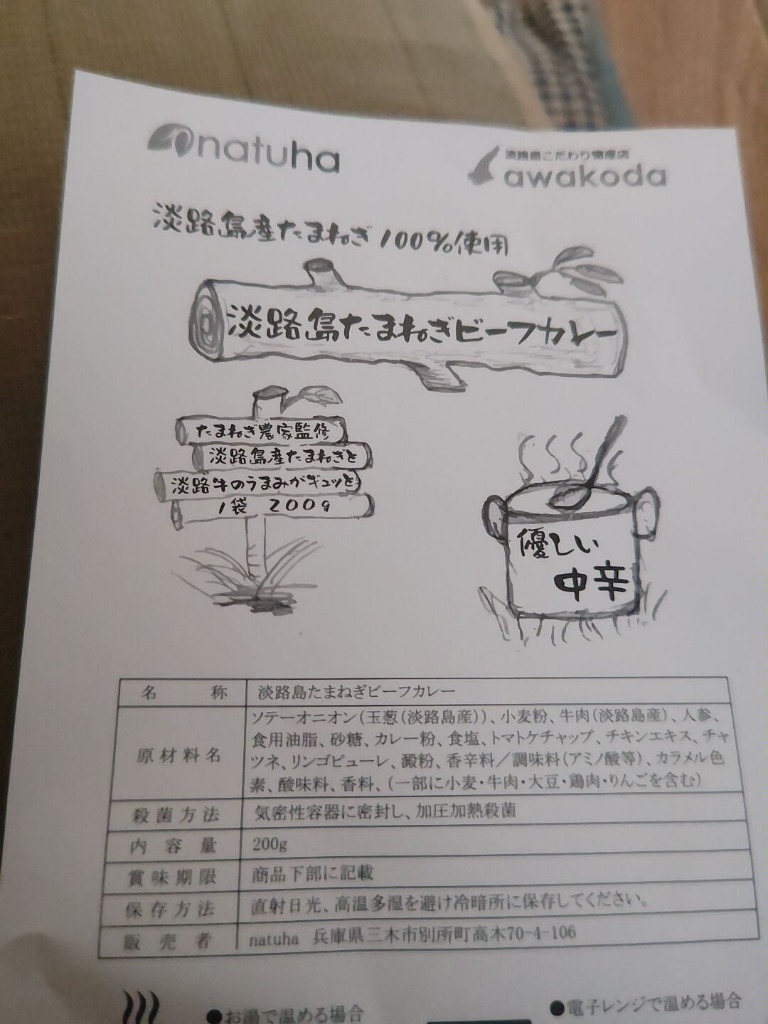 natuha
淡路島こだわり物産店
awakoda
淡路島産たまねぎ100%使用
淡路島たまねぎビーフカレー
たまねぎ農家監修
淡路島産たまねぎと
淡路牛のうまみがギュッと
1袋 200g
優しい
中辛
名称 淡路島たまねぎビーフカレー
原材料名 ソテーオニオン(玉葱(淡路島産))、小麦粉、牛肉(淡路島産)、人参、
食用油脂、砂糖、カレー粉、食塩、トマトケチャップ、チキンエキス、チャ
ツネ、リンゴピューレ、澱粉、香辛料/調味料(アミノ酸等)、カラメル色
素、酸味料、香料、(一部に小麦・牛肉・大豆・鶏肉・りんごを含む)
殺菌方法 気密性容器に密封し、加圧加熱殺菌
内容量 200g
賞味期限 商品下部に記載
保存方法 直射日光、高温多湿を避け冷暗所に保存してください。
販売者 natuha 兵庫県三木市別所町高木70-4-106
●お湯で温める場合
●電子レンジで温める場合